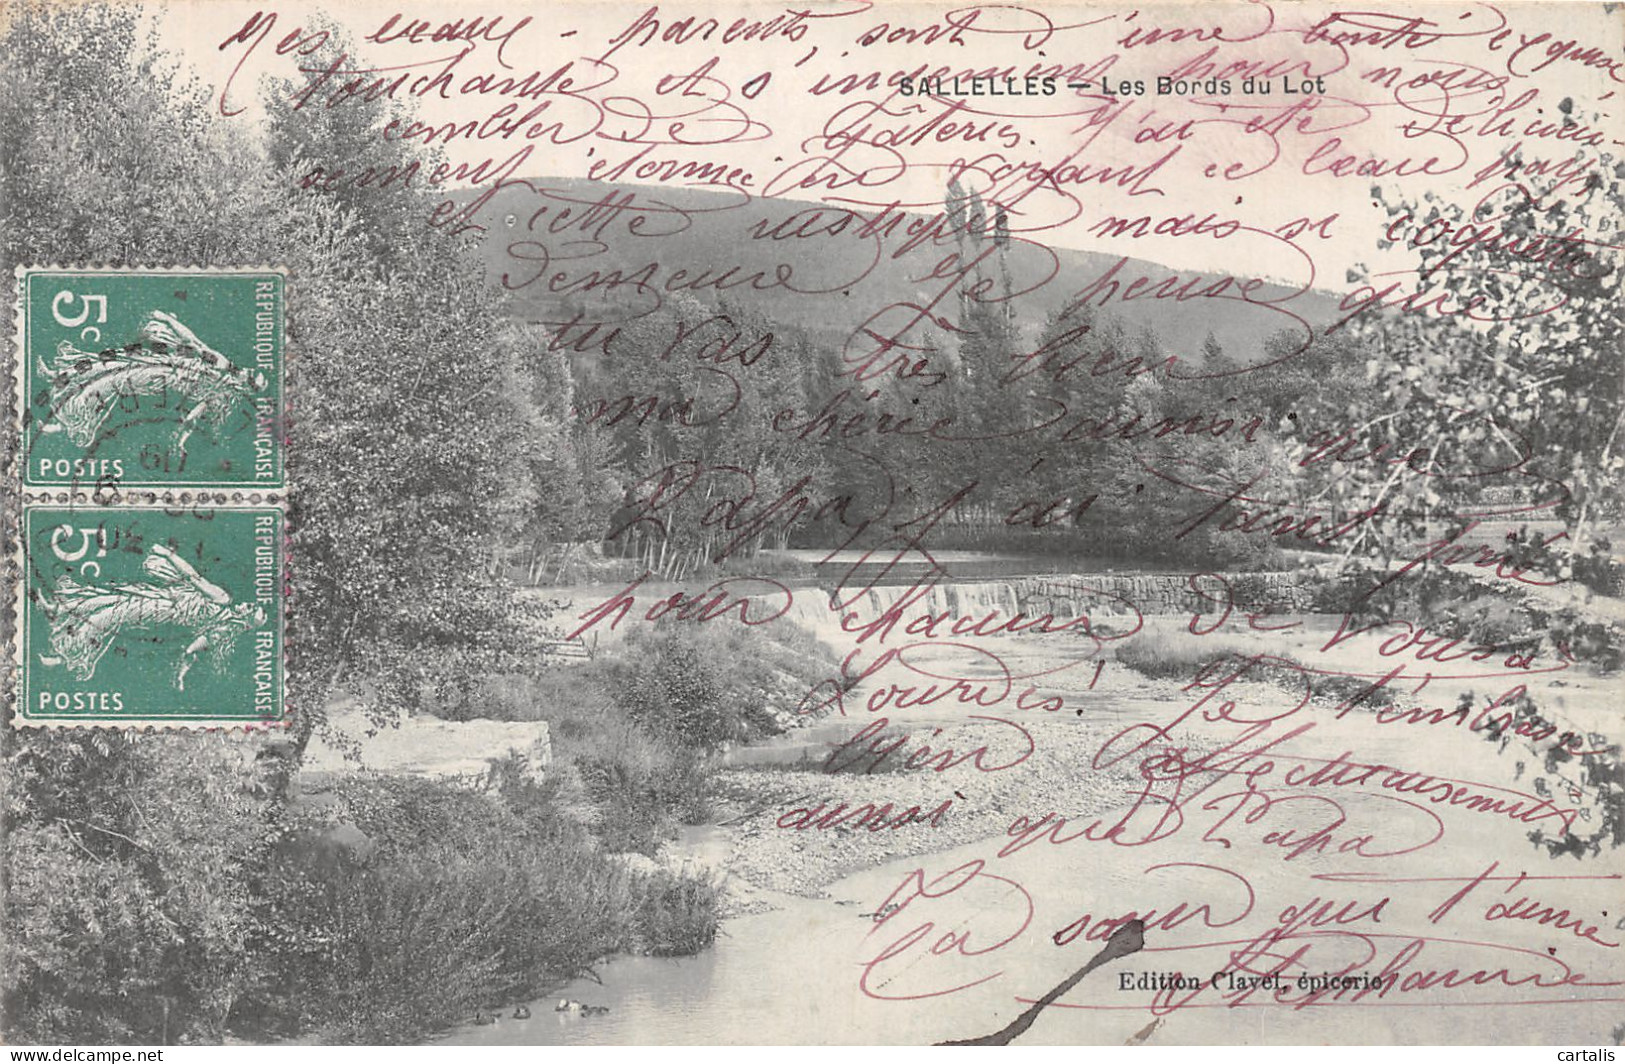 Mes beaux-parents, sont d'une bonté exquise,
touchante et s'ingénient pour nous
SALLELLES — Les Bords du Lot
combler de gâteries. J'ai été délicieu-
sement étonnée en voyant ce beau pays
et cette rustique mais si coquette
demeure. Je pense que
tu vas très bien
ma chérie ainsi que
Papa, j'ai tant prié
pour chacun de vous à
Lourdes! Je t'embrasse
bien affectueusement
ainsi que Papa
Ta sœur qui t'aime
Stéphanie
Edition Clavel, épicerie
REPUBLIQUE FRANÇAISE
5c
POSTES
REPUBLIQUE FRANÇAISE
5c
POSTES
cartalis
www.delcampe.net